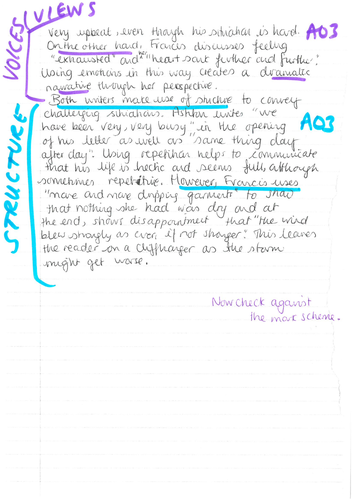 VOICES/VIEWS
very upbeat, even though his situation is hard. AO3
On the other hand, Francis discusses feeling
"exhausted" and "her heart sank further and further".
Using emotions in this way creates a dramatic
narrative through her perspective.
STRUCTURE
Both writers make use of structure to convey
challenging situations. Ashton writes "we AO3
have been very, very busy", in the opening
of his letter as well as "same thing day
after day". Using repetition helps to communicate
that his life is hectic and seems full, although
sometimes repetitive. However, Francis uses
"more and more dripping garments" to show
that nothing she had was dry and at
the end, shows disappointment that "the wind
blew strongly as ever, if not stronger". This leaves
the reader on a cliffhanger as the storm
might get worse.
Now check against
the mark scheme.